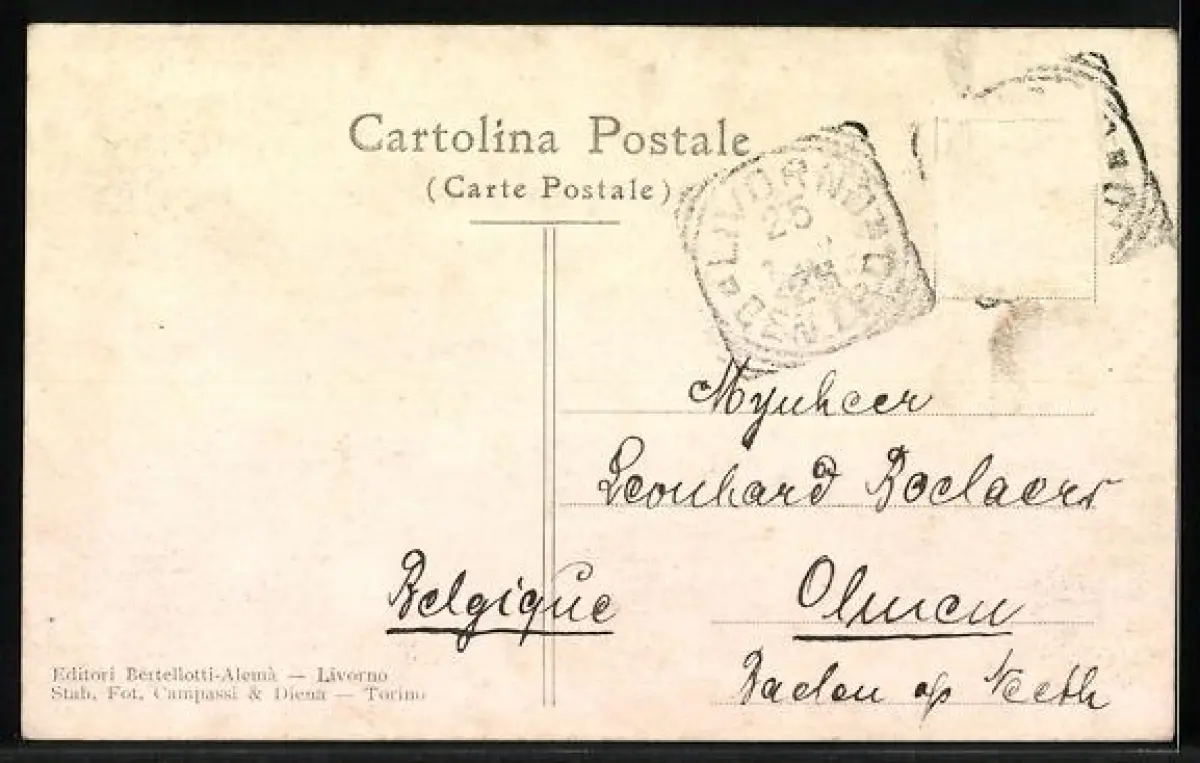 Cartolina Postale
(Carte Postale)
LIVORNO
25
CENTRO
Mynheer
Leonhard Boelaers
Belgique
Olmen
Baelen op Neeth
Editori Bertellotti-Alemà — Livorno
Stab. Fot. Campassi & Diena — Torino